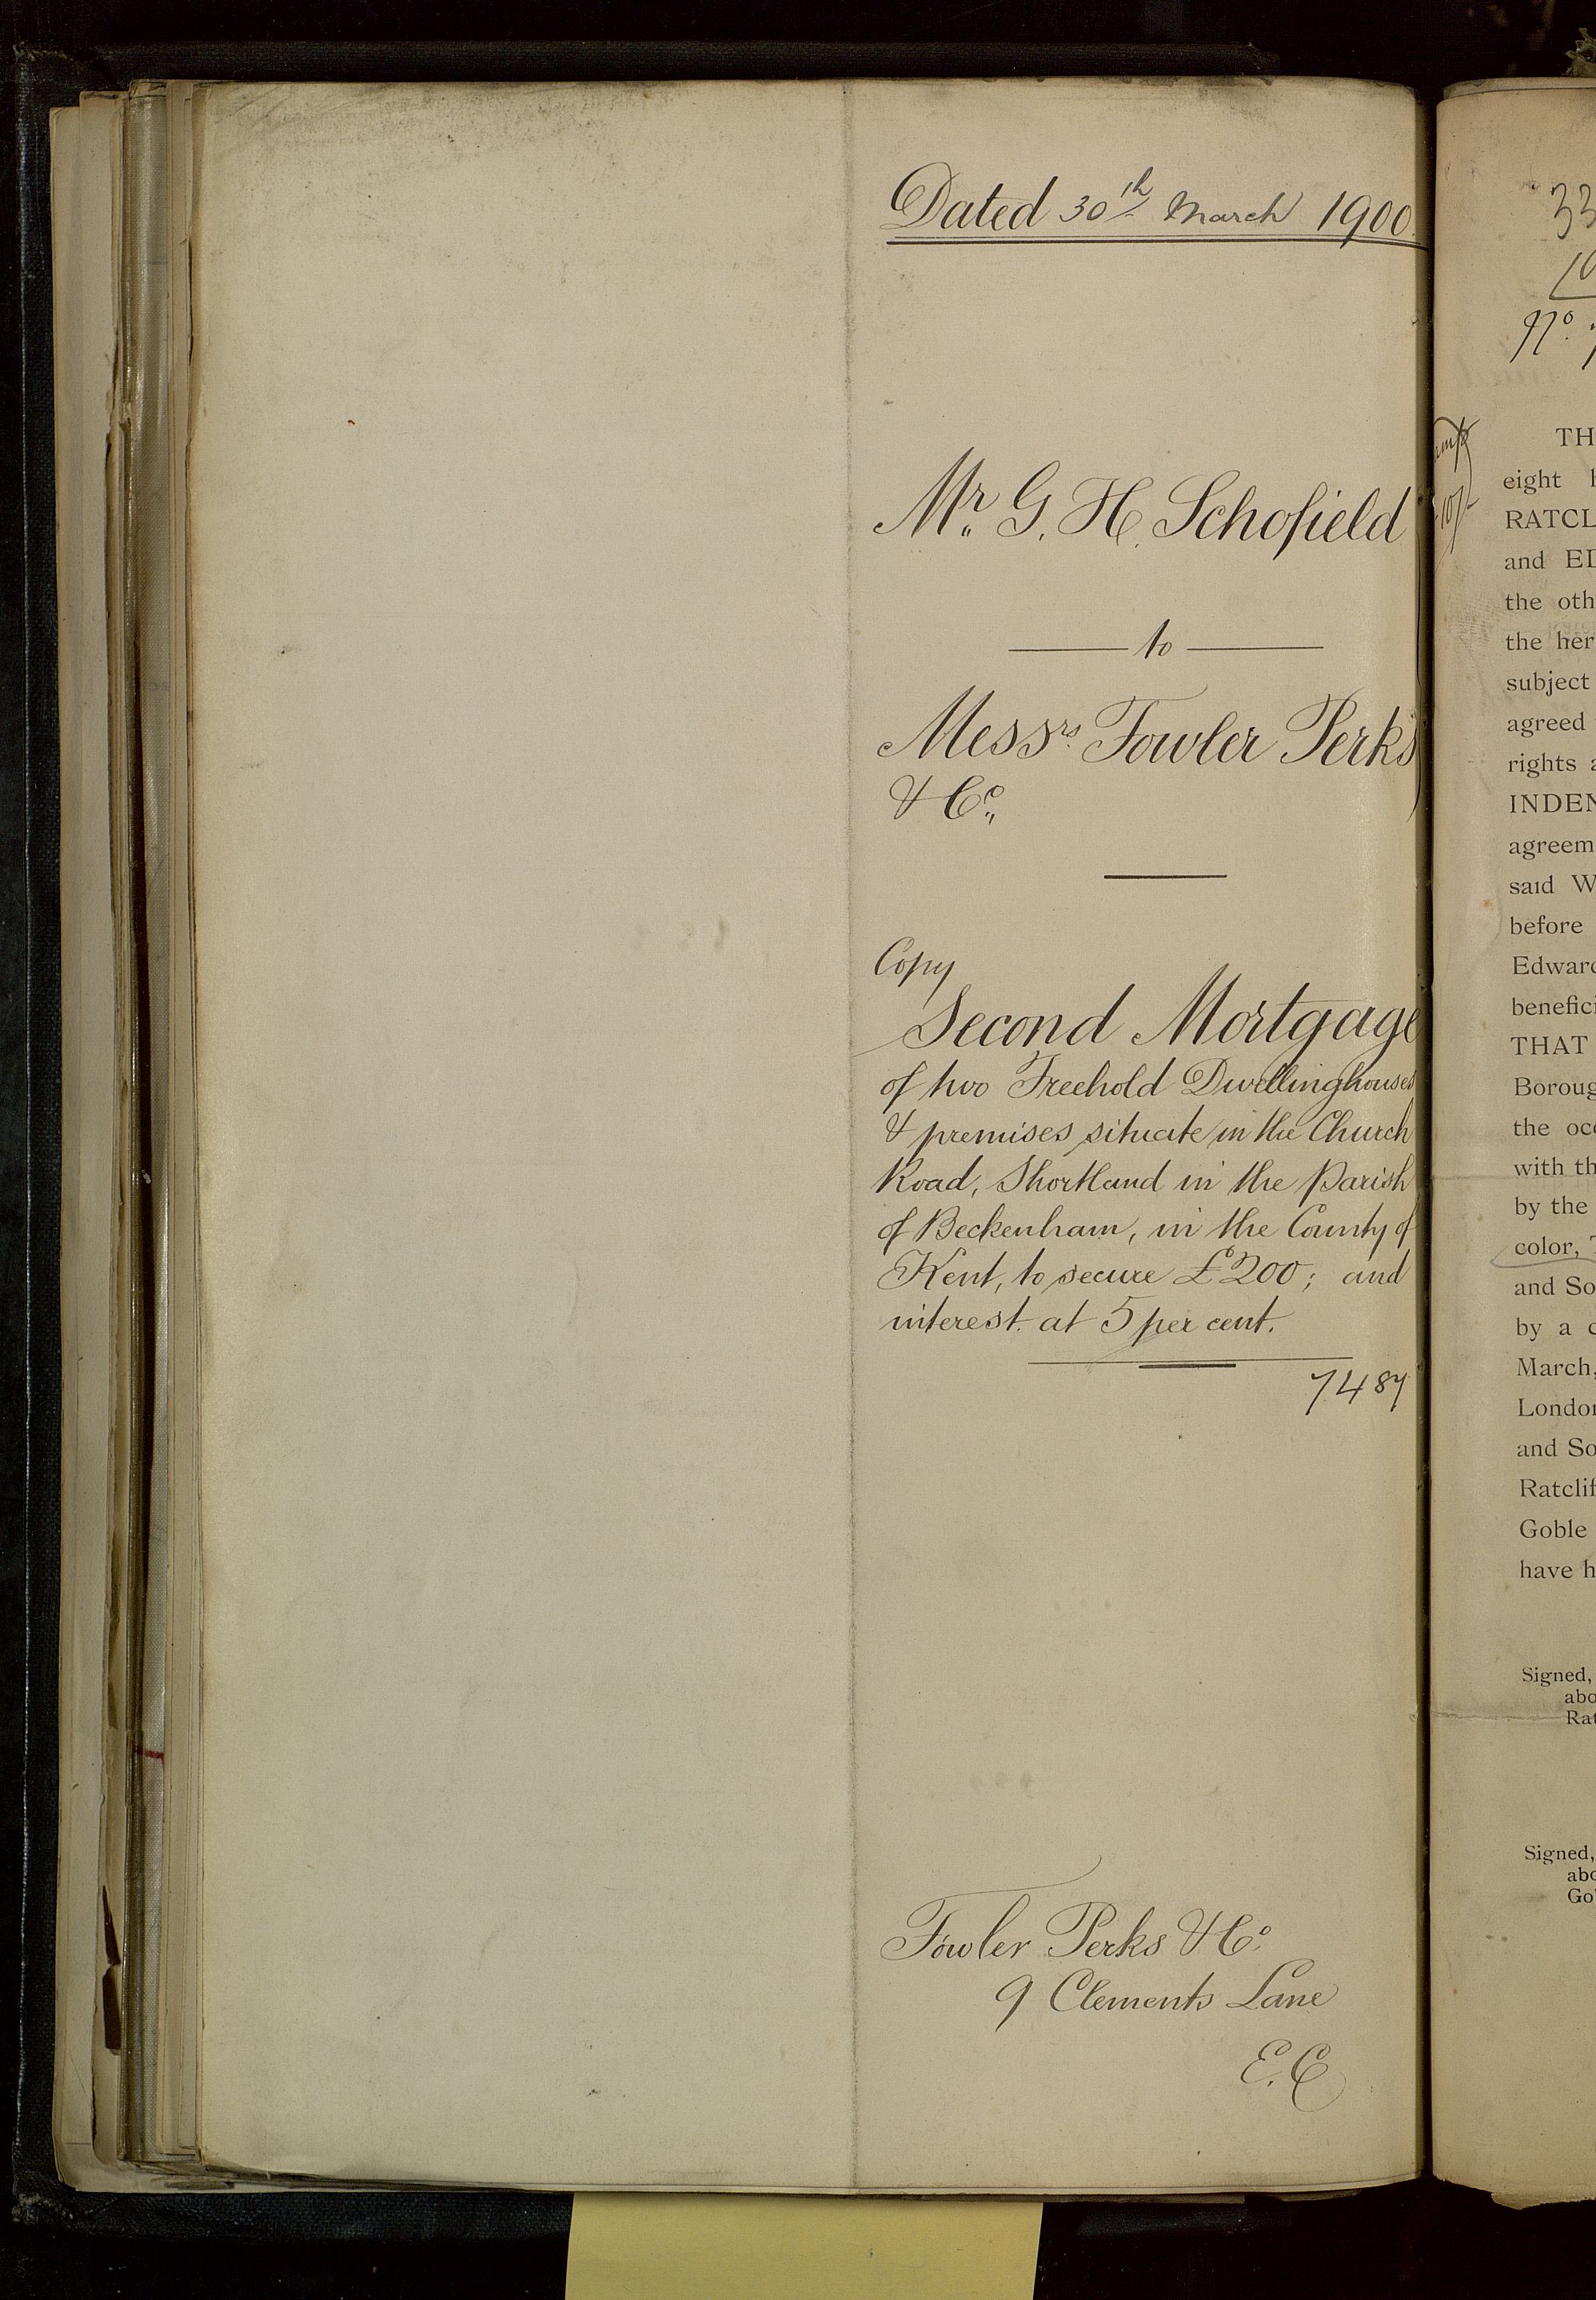 Dated 30th March 1900.
Mr. G. H. Schofield
to
Messrs. Fowler Perks
& Co.
Copy
Second Mortgage
of two Freehold Dwellinghouses
& premises situate in the Church
Road, Shortland in the Parish
of Beckenham, in the County of
Kent, to secure £200; and
interest at 5 per cent.
7487
Fowler Perks & Co.
9 Clements Lane
E.C
33
10
No.
TH
eight h
RATCL
and ED
the oth
the her
subject
agreed
rights a
INDEN
agreem
said W
before
Edward
benefici
THAT
Boroug
the occ
with th
by the
color, T
and So
by a c
March,
London
and So
Ratclif
Goble
have h
Signed,
abo
Rat
Signed,
abo
Go